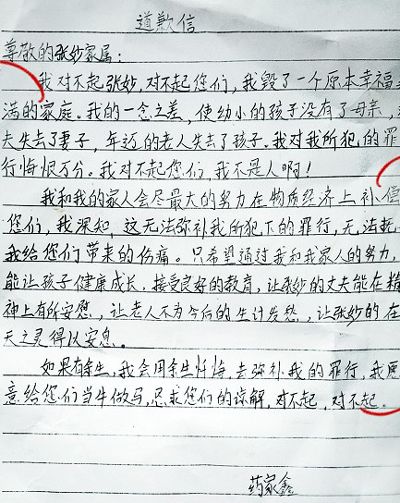 道歉信
尊敬的张妙家属:
我对不起张妙,对不起您们,我毁了一个原本幸福美
满的家庭。我的一念之差,使幼小的孩子没有了母亲,
夫失去了妻子,年迈的老人失去了孩子。我对我所犯的罪
行悔恨万分。我对不起您们,我不是人啊!
我和我的家人会尽最大的努力在物质经济上补偿
您们,我深知,这无法弥补我所犯下的罪行,无法抚
我给您们带来的伤痛。只希望通过我和我家人的努力,
能让孩子健康成长,接受良好的教育,让张妙的丈夫能在精
神上有所安慰,让老人不为今后的生计发愁,让张妙的在
天之灵得以安息。
如果有余生,我会用余生忏悔,去弥补我的罪行,我愿
意给您们当牛做马,恳求您们的谅解,对不起,对不起。
药家鑫